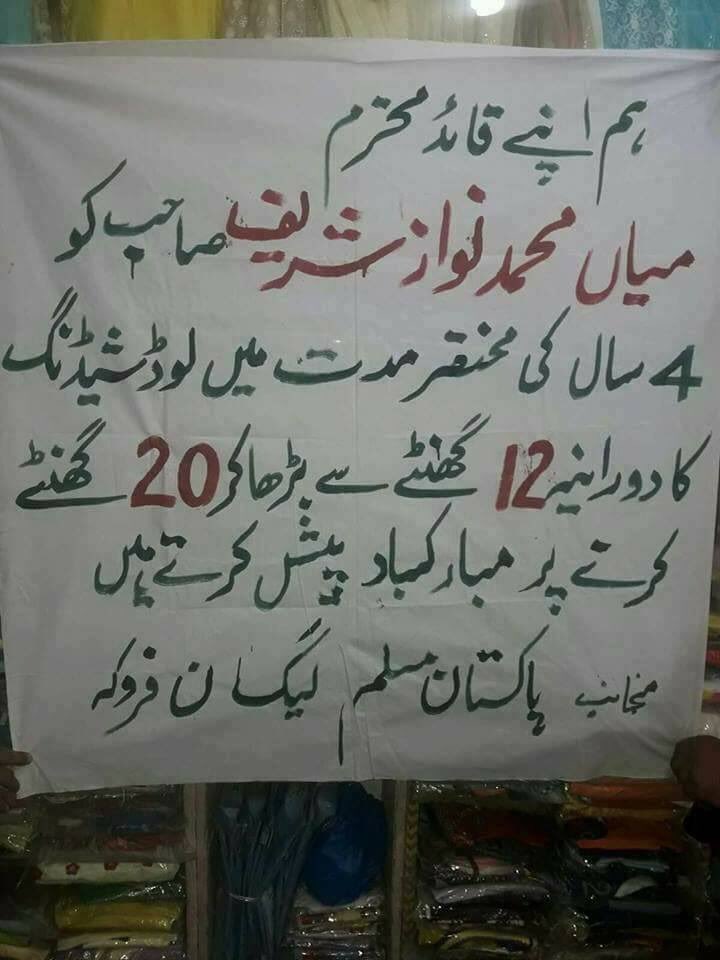 ہم اپنے قائد محترم
میاں محمد نواز شریف صاحب کو
4 سال کی مختصر مدت میں لوڈشیڈنگ
کا دورانیہ 12 گھنٹے سے بڑھا کر 20 گھنٹے
کرنے پر مبارکباد پیش کرتے ہیں
منجانب پاکستان مسلم لیگ ن فروکہ